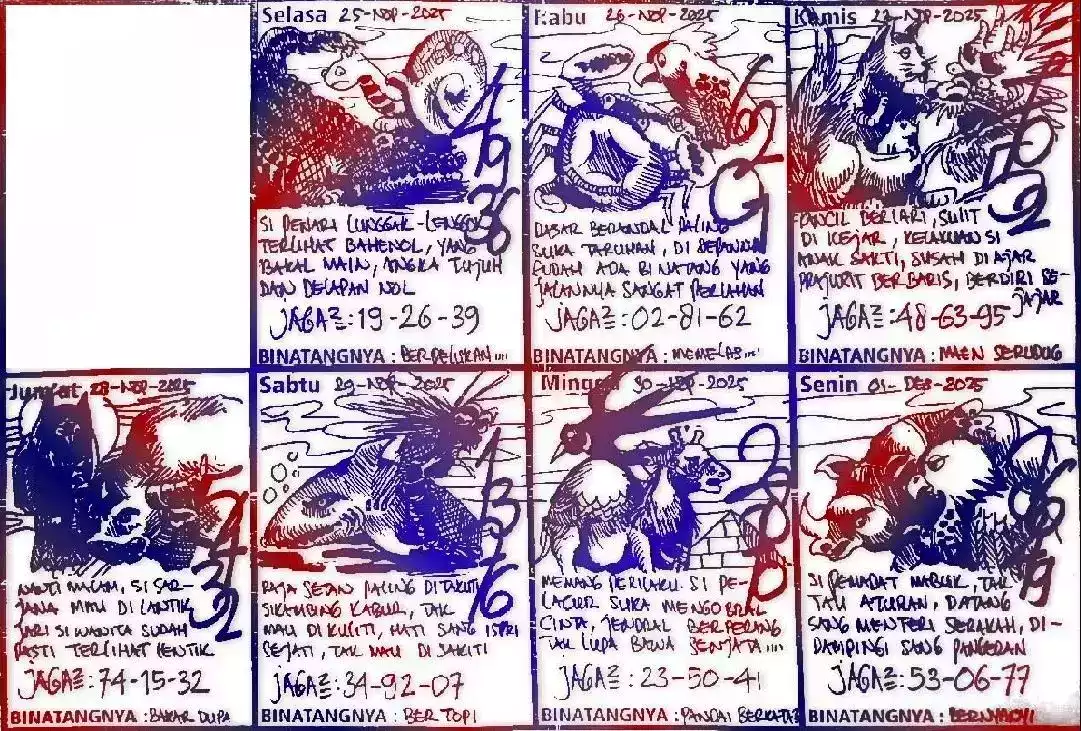 Selasa 25-NOP-2025
4
79
36
SI PENARI LUNGGAK-LENGGOK
TERLIHAT BAHENOL, YANG
BAKAL MAIN, ANGKA TUJUH
DAN DELAPAN NOL
JAGA2=:19-26-39
BINATANGNYA : BERPELISKAN....
Rabu 26-NOP-2025
6
2
DASAR BERANDAL PALING
SUKA TARUHAN, DI DEPANNYA
SUDAH ADA BINATANG YANG
JALANNYA SANGAT PERLAHAN
JAGA2=:02-81-62
BINATANGNYA : MEMELAS....
Kamis 27-NOP-2025
KANCIL BERLARI, SULIT
DI KEJAR, KELAKUAN SI
ANAK SAKTI, SUSAH DI AJAR
PRAJURIT BERBARIS, BERDIRI SE-
JAJAR
JAGA2=:48-63-95
BINATANGNYA : MAEN SERUDUG
Jumat 28-NOP-2025
32
NANTI MALAM, SI SAR-
JANA MAU DI LANTIK
JARI SI WANITA SUDAH
PASTI TERLIHAT LENTIK
JAGA2=:74-15-32
BINATANGNYA : BAKAR DUPA
Sabtu 29-NOP-2025
1
3
76
RAJA SETAN PALING DI TAKUTI
SIKAMBING KABUR, TAK
MAU DI KULITI, HATI SANG ISTRI
SEJATI, TAK MAU DI SAKITI
JAGA2=:34-92-07
BINATANGNYA : BERTOPI
Minggu 30-NOP-2025
2
8
MEMANG PERILAKU SI PE-
LACUR SUKA MENGOBRAL
CINTA, JENDRAL BERPERANG
TAK LUPA BAWA SENJATA....
JAGA2=:23-50-41
BINATANGNYA : PANDAI BERKATA2
Senin 01-DEB-2025
SI PEMADAT MABUK, TAK
TAU ATURAN, DATANG
SANG MENTERI SERAKAH, DI-
DAMPINGI SANG PANGERAN
JAGA2=:53-06-77
BINATANGNYA : BERNYANYI